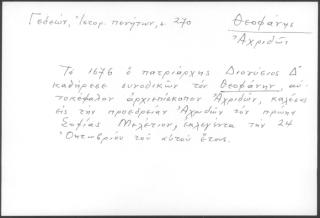 Γεδεών, Ἱστορ. πενήτων, σ. 270
Θεοφάνης
Ἀχριδῶν
Τὸ 1676 ὁ πατριάρχης Διονύσιος Δ΄
καθήρεσε συνοδικῶς τὸν Θεοφάνην, αὐ-
τοκέφαλον ἀρχιεπίσκοπον Ἀχριδῶν, καλέσας
εἰς τὴν προεδρείαν Ἀχριδῶν τὸν πρώην
Σοφίας Μελέτιον, ἐκλεγέντα τὴν 24
Ὀκτωβρίου τοῦ αὐτοῦ ἔτους.